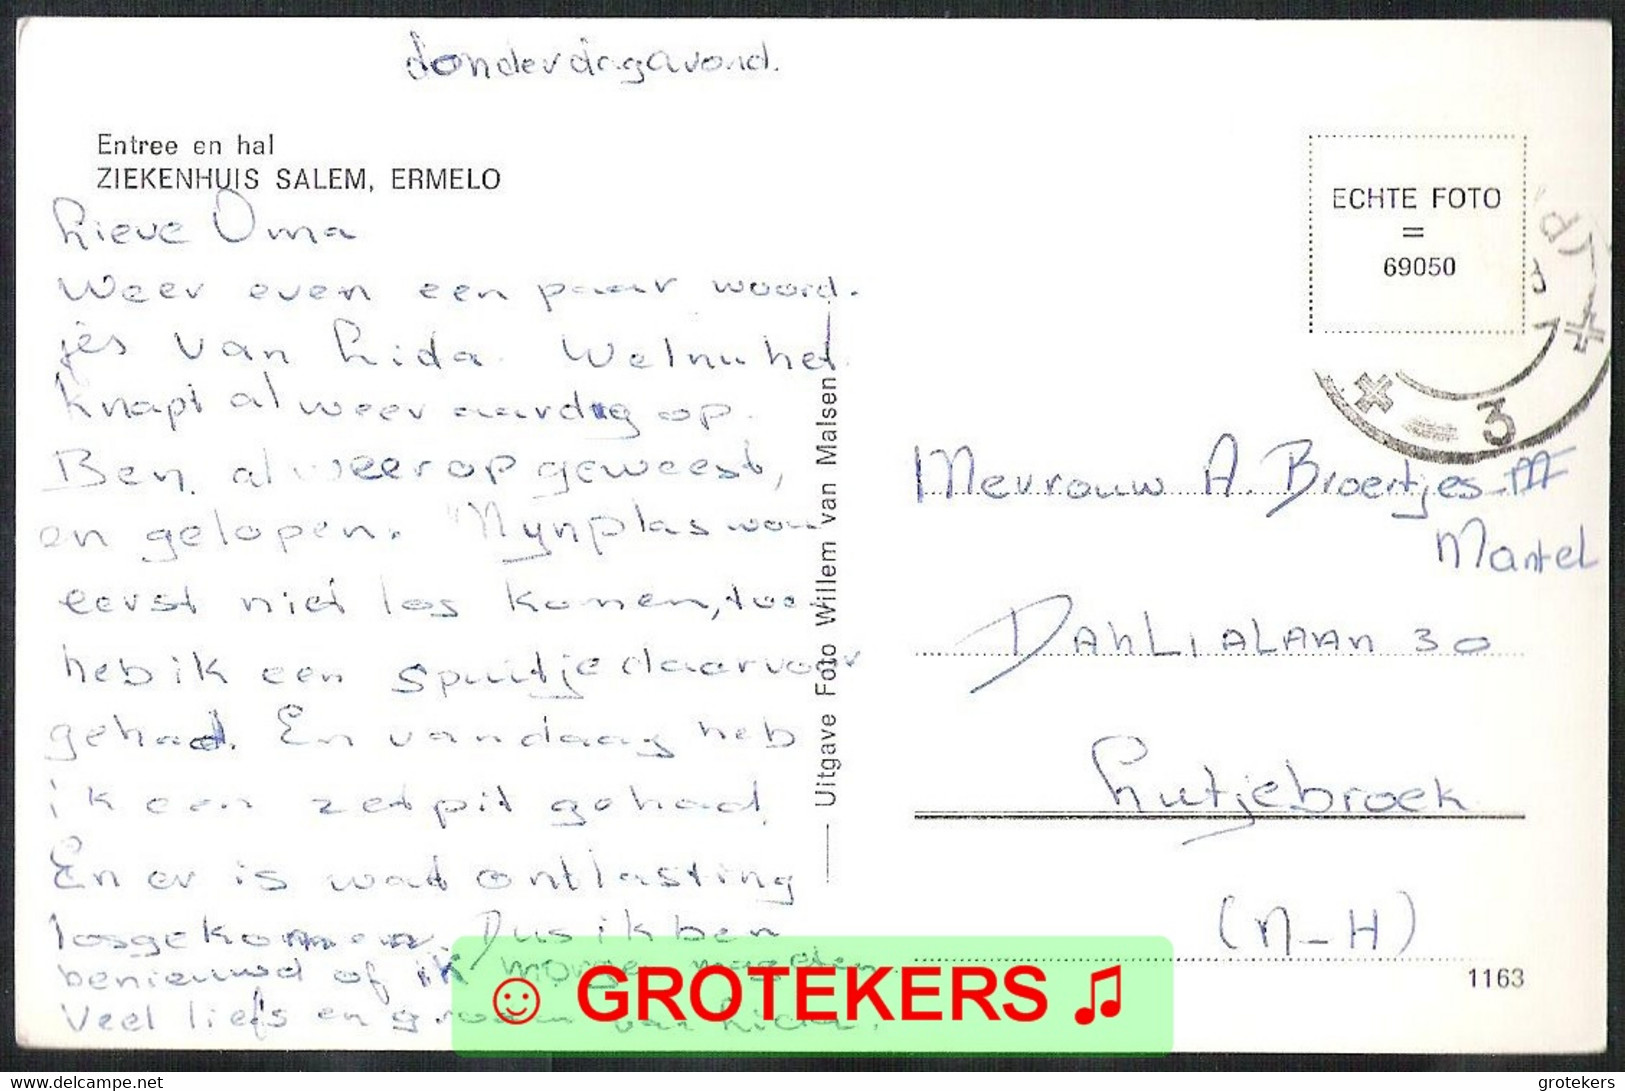 donderdagavond.
Entree en hal
ZIEKENHUIS SALEM, ERMELO
Lieve Oma
Weer even een paar woord-
jes van Lida. Wel nu het
Knapt al weer aardig op.
Ben al weer op geweest,
en gelopen. Mijn plas wou
eerst niet los komen, toe
heb ik een spuitje daarvoor
gehad. En vandaag heb
ik een zetpil gehad
En er is wat ontlasting
losgekomen. Dus ik ben
benieuwd of ik morge
Veel liefs en van Lida.
Uitgave Foto Willem van Malsen
ECHTE FOTO
=
69050
3
Mevrouw A. Broertjes
Mantel
DAHLIALAAN 30
Lutjebroek
(N-H)
1163
☺ GROTEKERS ♫
https://www.delcampe.net
grotekers